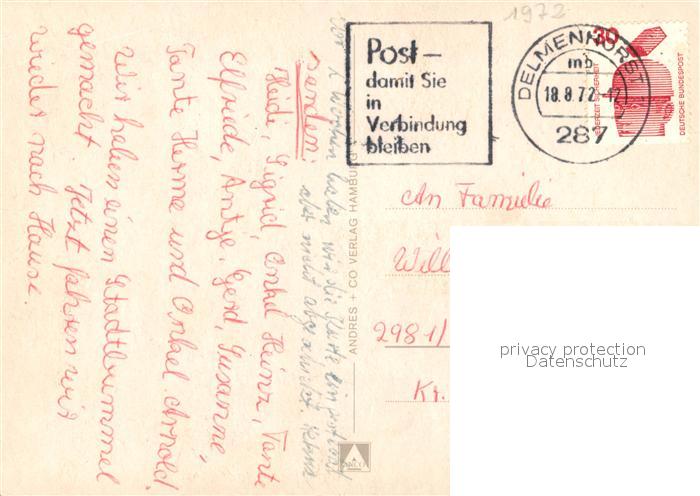 1972
Post –
damit Sie
in
Verbindung
bleiben
DELMENHORST
mb
18.8.72-17
287
30
JEDERZEIT SICHERHEIT
DEUTSCHE BUNDESPOST
An Familie
Will
2981/
Kr.
privacy protection
Datenschutz
ANDRES + CO VERLAG HAMBURG
haben wir die Karte
aber nicht abgeschickt.
senden:
Heidi, Sigrid, Onkel Heinz, Tante
Elfriede, Antje, Gerd, Susanne,
Tante Herma und Onkel Arnold.
Wir haben einen Stadtbummel
gemacht. Jetzt fahren wir
wieder nach Hause.